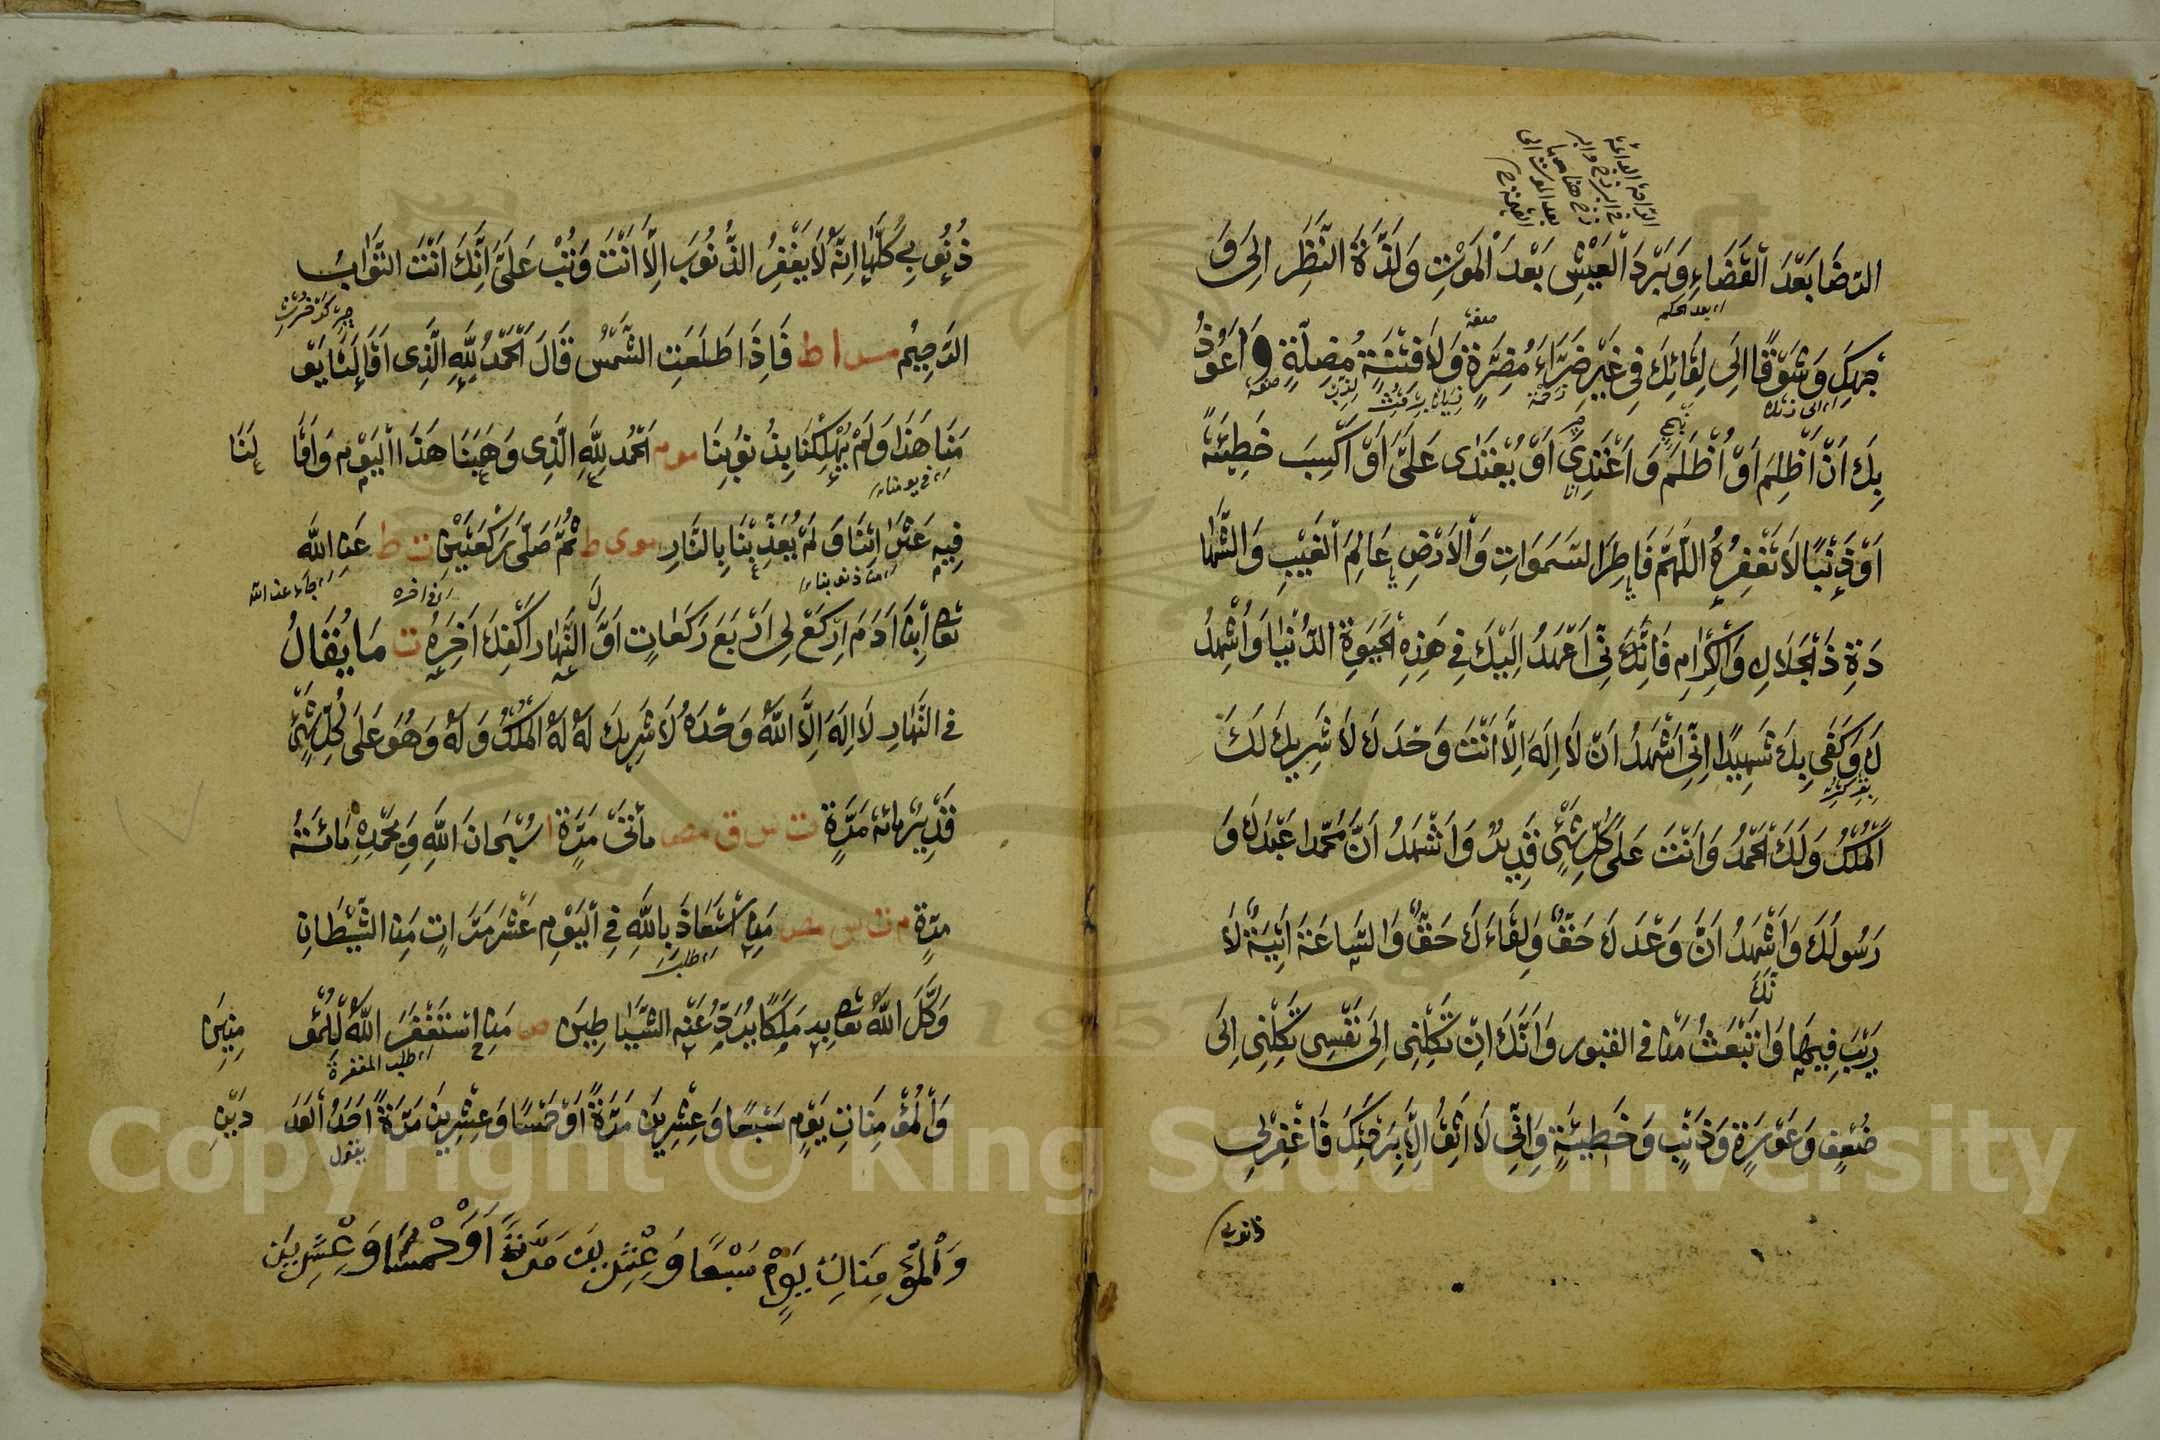 الرِّضَا بَعْدَ الْقَضَاءِ وَبَرْدَ الْعَيْشِ بَعْدَ الْمَوْتِ وَلَذَّةَ النَّظَرِ اِلَى وَ
بعد الحكم
جْهِكَ وَشَوْقًا اِلَى لِقَائِكَ فِي غَيْرِ ضَرَّاءَ مُضِرَّةٍ وَلَا فِتْنَةٍ مُضِلَّةٍ وَاَعُوْذُ
صفة
بِكَ اَنْ اَظْلِمَ اَوْ اُظْلَمَ وَاَعْتَدِيَ اَوْ يُعْتَدٰى عَلَيَّ اَوْ اَكْسِبَ خَطِيْئَةً
اَوْ ذَنْبًا لَا تَغْفِرُهُ اللّٰهُمَّ فَاطِرَ السَّمَوَاتِ وَالْاَرْضِ عَالِمَ الْغَيْبِ وَالشَّهَا
دَةِ ذَا الْجَلَالِ وَالْاِكْرَامِ فَاِنِّي اَعْهَدُ اِلَيْكَ فِي هَذِهِ الْحَيٰوةِ الدُّنْيَا وَاُشْهِدُ
كَ وَكَفَى بِكَ شَهِيدًا اِنِّي اَشْهَدُ اَنْ لَا اِلَهَ اِلَّا اَنْتَ وَحْدَكَ لَا شَرِيكَ لَكَ
الْمُلْكُ وَلَكَ الْحَمْدُ وَاَنْتَ عَلَى كُلِّ شَيْءٍ قَدِيرٌ وَاَشْهَدُ اَنَّ مُحَمَّدًا عَبْدُكَ وَ
رَسُولُكَ وَاَشْهَدُ اَنَّ وَعْدَكَ حَقٌّ وَلِقَاءَكَ حَقٌّ وَالسَّاعَةَ اٰتِيَةٌ لَا
نَّكَ
رَيْبَ فِيهَا وَاَ تَبْعَثُ مَنْ فِي الْقُبُورِ وَاَنَّكَ اِنْ تَكِلْنِي اِلَى نَفْسِي تَكِلْنِي اِلَى
ضُعْفٍ وَعَوْرَةٍ وَذَنْبٍ وَخَطِيئَةٍ وَاِنِّي لَا اَثِقُ اِلَّا بِرَحْمَتِكَ فَاغْفِرْ لِي
ذنوبي
ذُنُوبِي كُلَّهَا اِنَّهُ لَا يَغْفِرُ الذُّنُوبَ اِلَّا اَنْتَ وَتُبْ عَلَيَّ اِنَّكَ اَنْتَ التَّوَّابُ
الرَّحِيمُ مس ا ط فَاِذَا طَلَعَتِ الشَّمْسُ قَالَ اَلْحَمْدُ لِلّٰهِ الَّذِي اَقَالَنَا يَوْ
مَنَا هَذَا وَلَمْ يُهْلِكْنَا بِذُنُوبِنَا مو م اَلْحَمْدُ لِلّٰهِ الَّذِي وَهَبَنَا هَذَا الْيَوْمَ وَاَقَا لَنَا
في يومنا
فِيهِ عَثَرَاتِنَا وَلَمْ يُعَذِّبْنَا بِالنَّارِ مو ى ط ثُمَّ صَلَّى رَكْعَتَيْنِ ت ط عَنِ اللّٰهِ
من ذنوبنا
تَعَالَى اِبْنَ اٰدَمَ اِرْكَعْ لِي اَرْبَعَ رَكَعَاتٍ اَوَّلَ النَّهَارِ اَكْفِكَ اٰخِرَهُ ت مَا يُقَالُ
فِي النَّهَارِ لَا اِلَهَ اِلَّا اللّٰهُ وَحْدَهُ لَا شَرِيكَ لَهُ لَهُ الْمُلْكُ وَلَهُ وَهُوَ عَلَى كُلِّ شَيْءٍ
قَدِيرٌ مِائَةَ مَرَّةٍ ت س ق مص مِأَتَيْ مَرَّةٍ ا سُبْحَانَ اللّٰهِ وَبِحَمْدِهِ مِائَةَ
مَرَّةٍ م ت س مص مَنِ اسْتَعَاذَ بِاللّٰهِ فِي الْيَوْمِ عَشْرَ مَرَّاتٍ مِنَ الشَّيْطَانِ
طلب
وَكَّلَ اللّٰهُ تَعَالَى بِهِ مَلَكًا يَرُدُّ عَنْهُ الشَّيَاطِينَ ص مَنِ اسْتَغْفَرَ اللّٰهَ لِلْمُؤْ مِنِينَ
طلب المغفرة
وَالْمُؤْمِنَاتِ يَوْمٍ سَبْعًا وَعِشْرِينَ مَرَّةً اَوْ خَمْسًا وَعِشْرِينَ مَرَّةً اَحَدُ الْعَدَ دَيْنِ
يقول
وَالْمُؤْمِنَاتِ يَوْمٍ سَبْعًا وَعِشْرِينَ مَرَّةً اَوْ خَمْسًا وَعِشْرِينَ
Copyright © King Saud University
1957